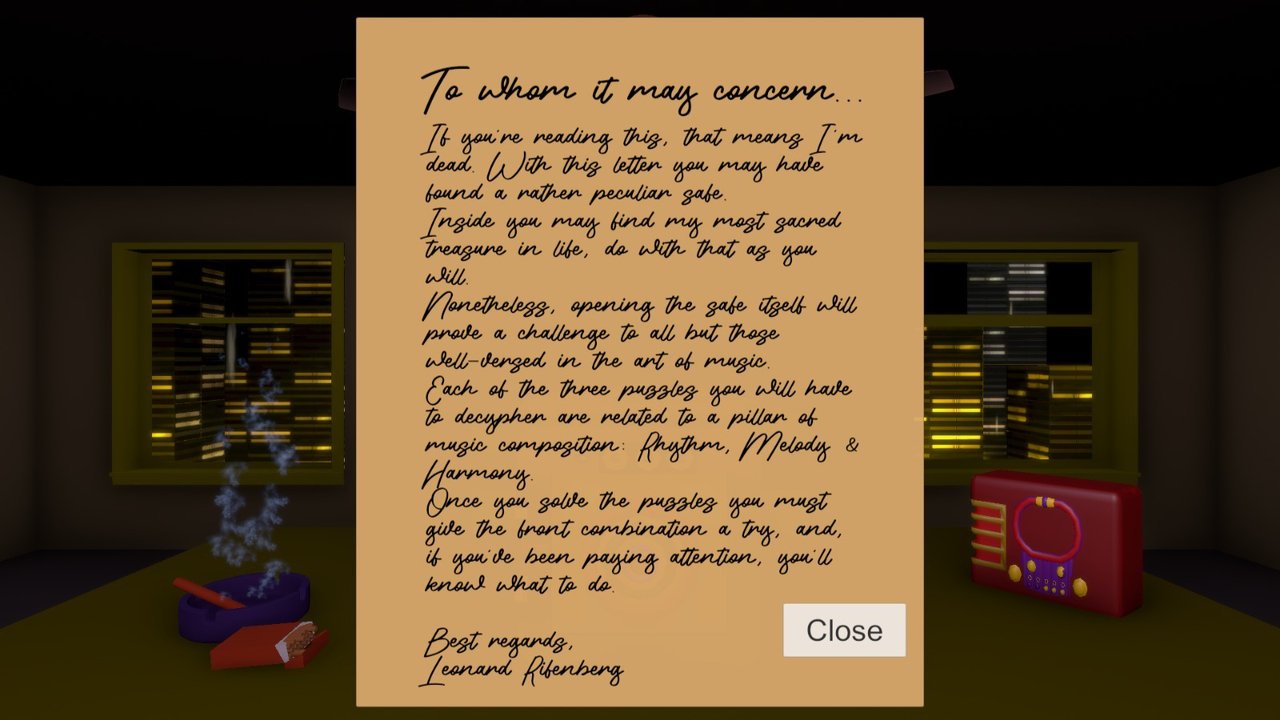 To whom it may concern...
If you're reading this, that means I'm
dead. With this letter you may have
found a rather peculiar safe.
Inside you may find my most sacred
treasure in life, do with that as you
will.
Nonetheless, opening the safe itself will
prove a challenge to all but those
well-versed in the art of music.
Each of the three puzzles you will have
to decypher are related to a pillar of
music composition: Rhythm, Melody &
Harmony.
Once you solve the puzzles you must
give the front combination a try, and,
if you've been paying attention, you'll
know what to do.
Best regards,
Leonard Rifenberg
Close